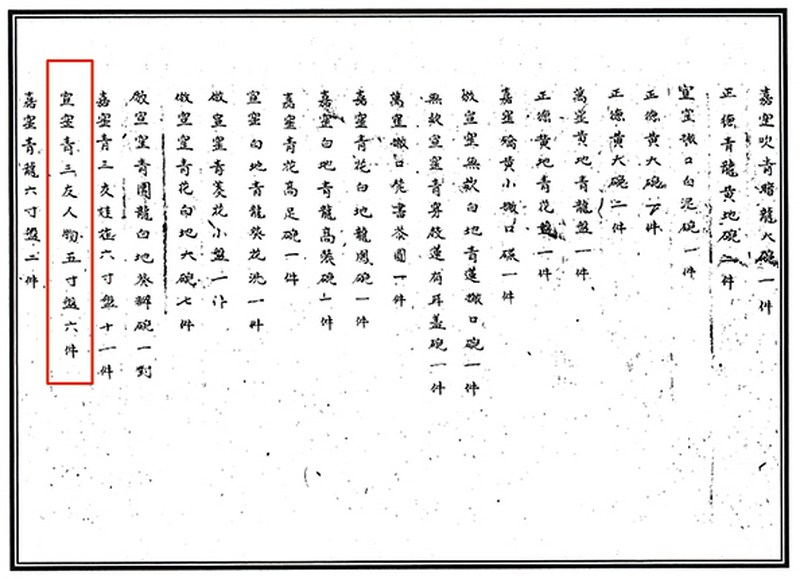 嘉窑吹青暗龍大碗一件
正德青龍黄地碗二件
宣窑撇口白泥碗一件
正德黄大碗一件
正德黄大碗二件
萬窑黄地青龍盤一件
正德黄地青花盤一件
嘉窑矯黄小撇口碟一件
倣宣窑無欵白地青蓮撇口碗一件
無欵宣窑青穿枝蓮有耳盖碗一件
萬窑撇口梵書茶圓一件
嘉窑青花白地龍鳳碗一件
嘉窑白地青龍高裝碗二件
嘉窑青花高足碗一件
宣窑白地青龍葵花洗一件
倣宣窑青菱花小盤一件
倣宣窑青花白地大碗七件
倣宣窑青團龍白地葵瓣碗一對
嘉窑青三友娃娃六寸盤十一件
宣窑青三友人物五寸盤六件
嘉窑青龍六寸盤二件